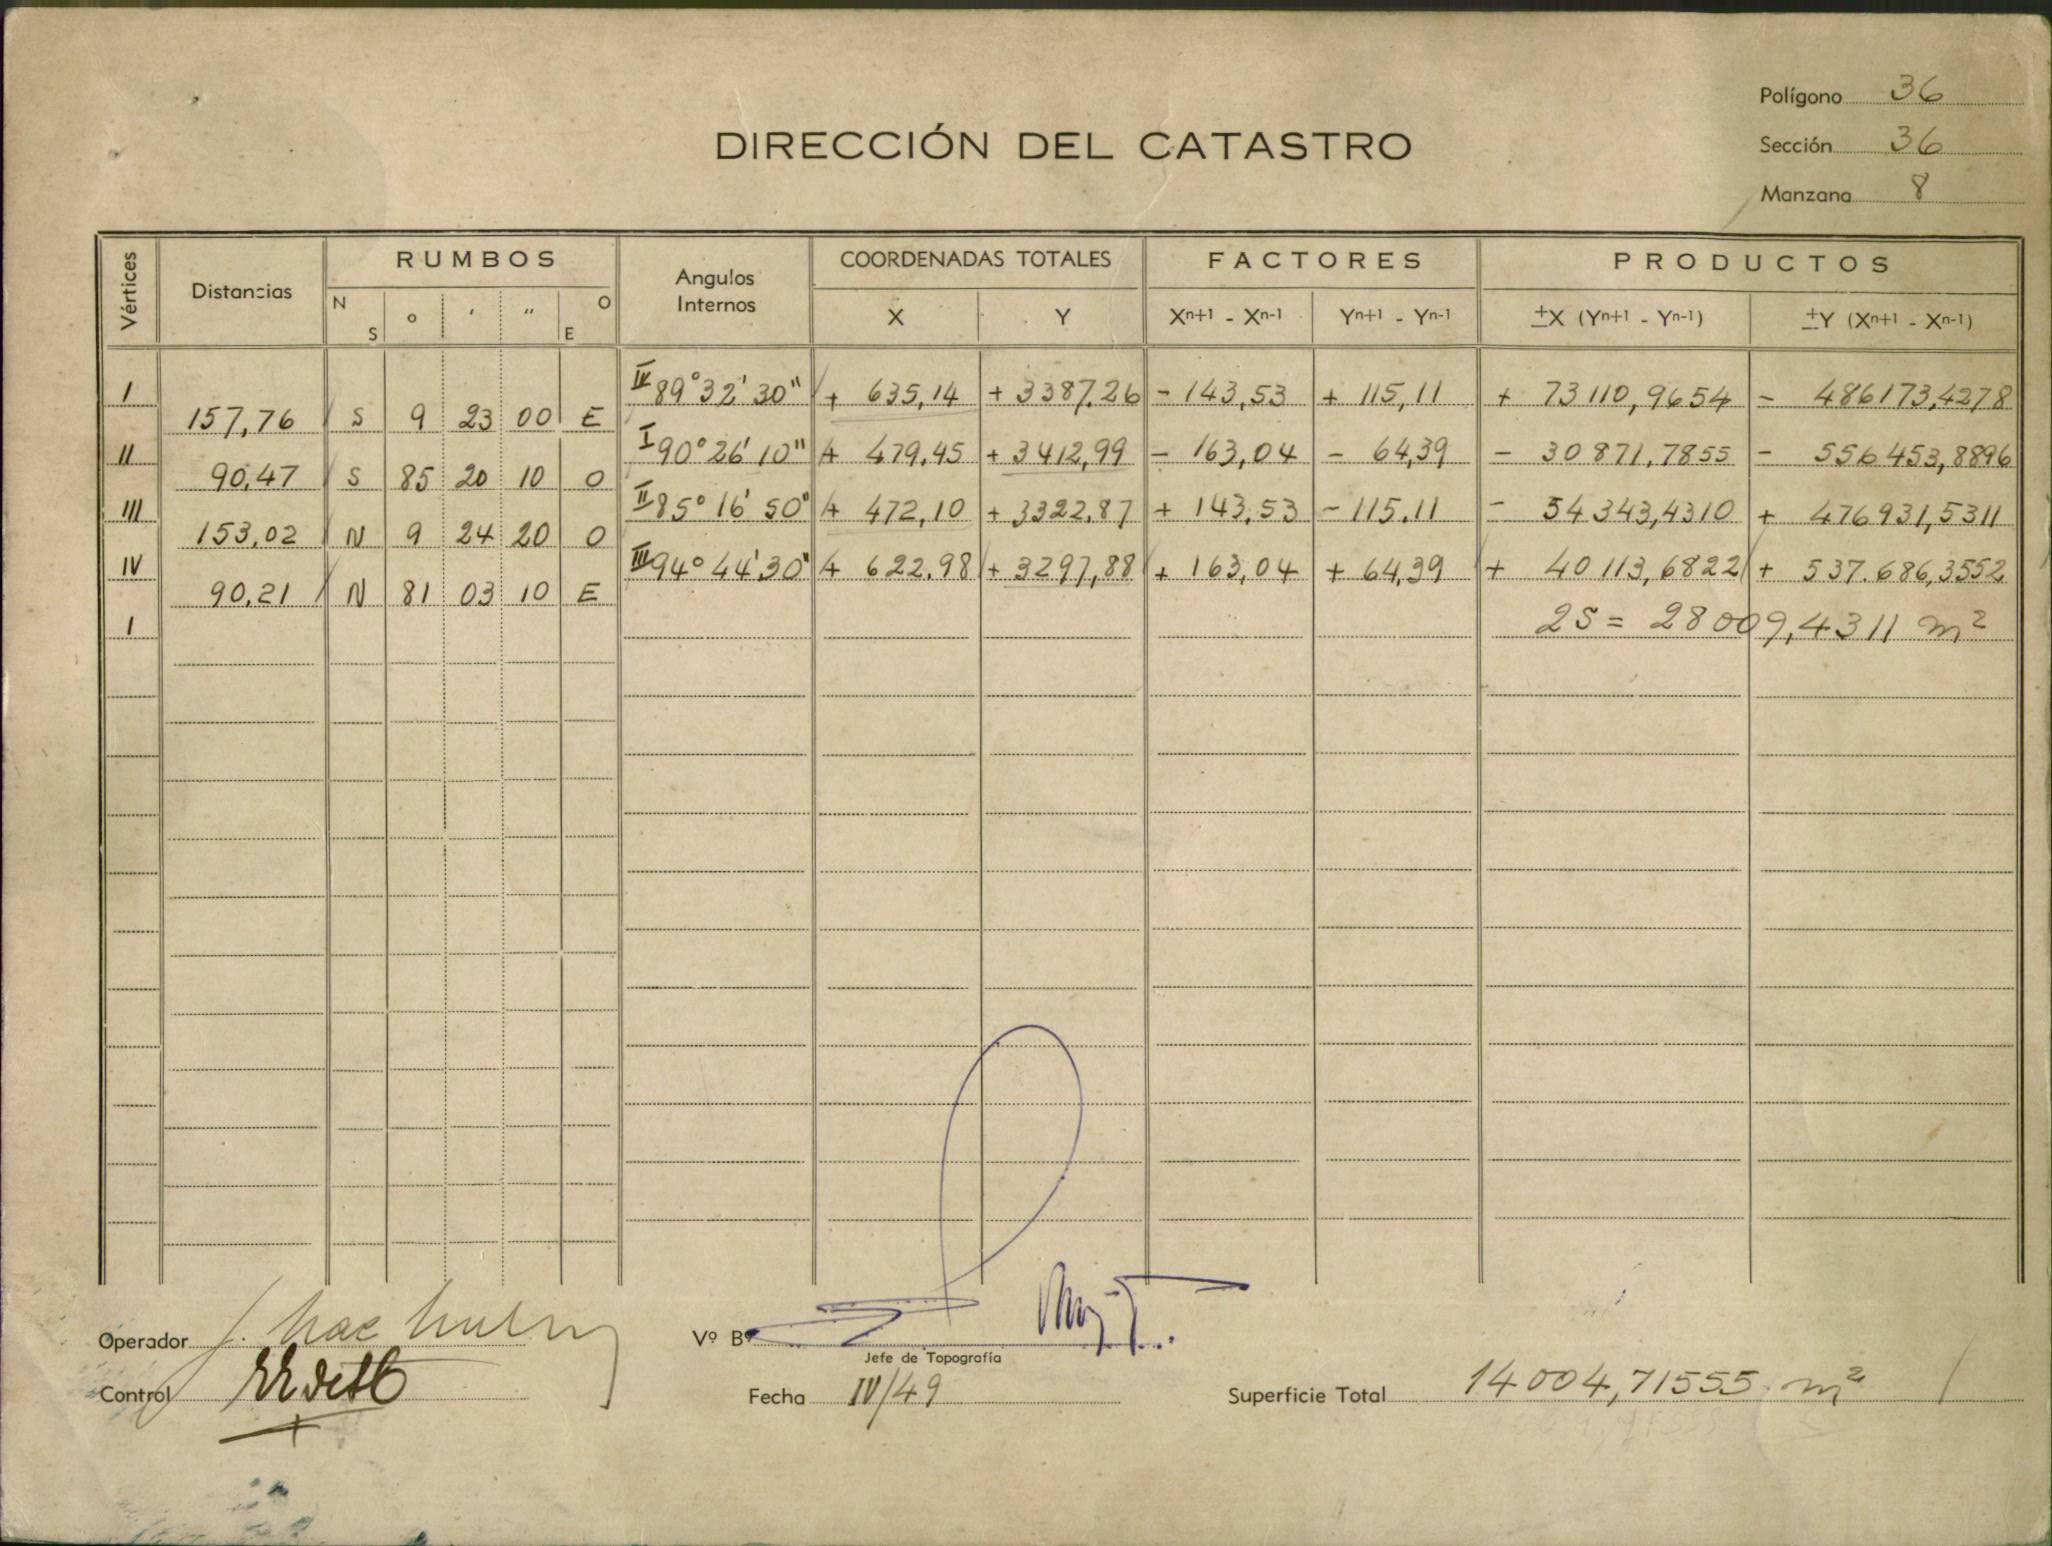 Polígono 36
DIRECCIÓN DEL CATASTRO
Sección 36
Manzana 8
Vértices Distancias RUMBOS Angulos Internos COORDENADAS TOTALES FACTORES PRODUCTOS
N S ° ' " O E X Y Xn+1 - Xn-1 Yn+1 - Yn-1 ±X (Yn+1 - Yn-1) ±Y (Xn+1 - Xn-1)
I IV 89° 32' 30" + 635,14 + 3387.26 - 143,53 + 115,11 + 73110,9654 - 486173,4278
157,76 S 9 23 00 E
II I 90° 26' 10" + 479,45 + 3412,99 - 163,04 - 64,39 - 30871,7855 - 556453,8896
90,47 S 85 20 10 O
III II 85° 16' 50" + 472,10 + 3322,87 + 143,53 - 115,11 - 54343,4310 + 476931,5311
153,02 N 9 24 20 O
IV III 94° 44' 30" + 622,98 + 3297,88 + 163,04 + 64,39 + 40113,6822 + 537.686,3552
90,21 N 81 03 10 E
I 2S = 28009,4311 m²
Operador
Vº Bº
Jefe de Topografía
Control
Fecha IV/49
Superficie Total 14004,71555 m²